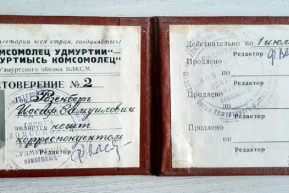 летарии всех стран, соединяйтесь!
КОМСОМОЛЕЦ УДМУРТИИ"
УРТИЫСЬ КОМСОМОЛЕЦ"
Удмуртского обкома ВЛКСМ.
СТОВЕРЕНИЕ № 2
Розенберг
Иосиф Самуилович
является
корреспондентом
Действительно по 1 июл
Редактор
Продлено
по
Редактор
Продлено
по
Редактор